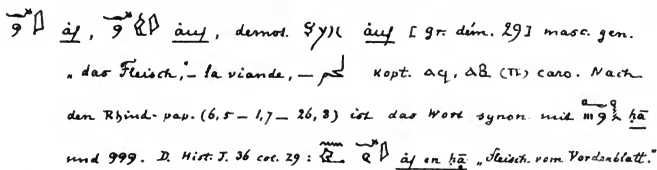 áf, áuf, demot. áuf [gr. dém. 29] masc. gen.
„das Fleisch", – la viande, – لحم kopt. ⲁϥ, ⲁⲃ (ⲡⲓ) caro. Nach
den Rhind-pap. (6,5 – 1,7 – 26,8) ist das Wort synon. mit ḥā
und 999. D. Hist. I. 36 col. 29: áf en ḥā „Fleisch vom Vorderblatt."